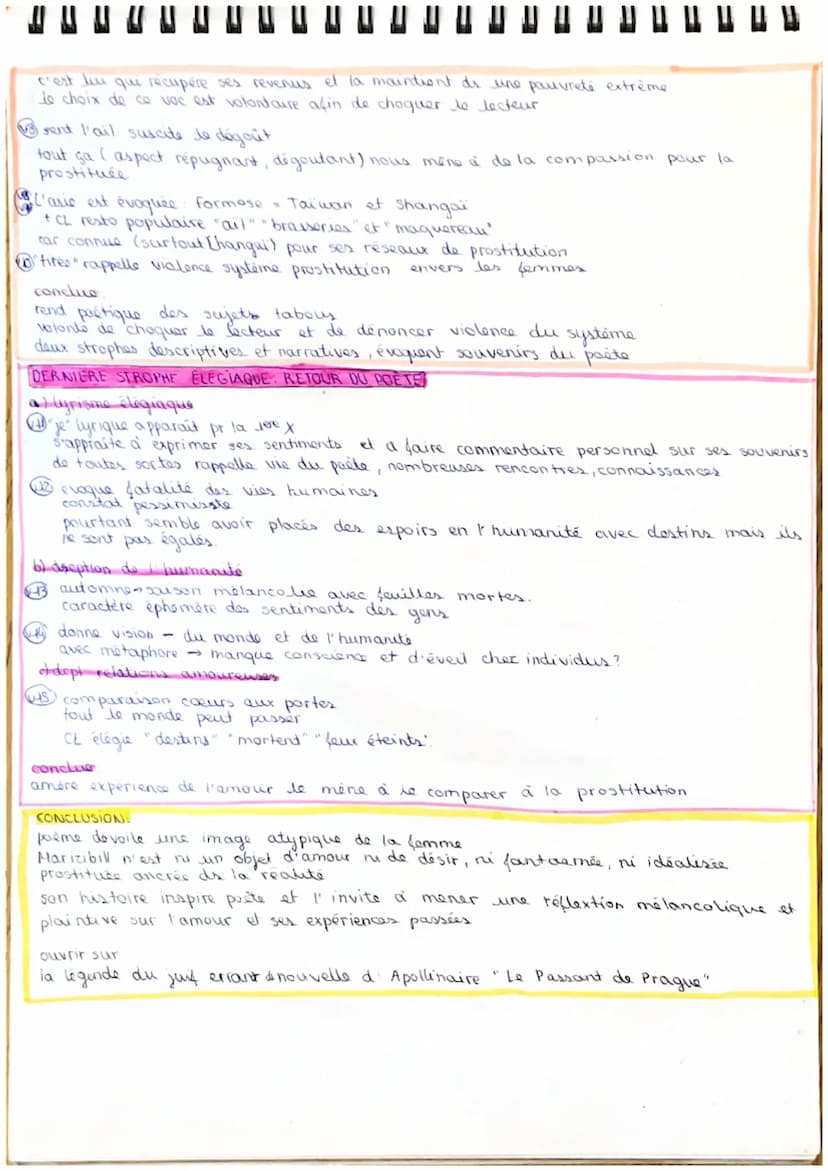 c'est lui qui récupère ses revenus et la maintient ds une pauvreté extrême
le choix de ce voc est volontaire afin de choquer le lecteur
V8 sent l'ail suscite le dégoût
tout ça (aspect répugnant, dégoutant) nous mène à de la compassion pour la
prostituée
L'asie est évoquée: Formose = Taïwan et Shangaï
+ CL resto populaire "ail" "brasseries" et "maquereau"
car connue (surtout Changai) pour ses réseaux de prostitution
V10 "tirée" rappelle violence système prostitution envers les femmes
conclue
rend poétique des sujets tabous
volonté de choquer le lecteur et de dénoncer violence du système
deux strophes descriptives et narratives, évoquent souvenirs du poète
DERNIÈRE STROPHE ÉLÉGIAQUE: RETOUR DU POÈTE
a) lyrisme élégiaque
V11 "je" lyrique apparaît pr la 1ère X
s'apprête à exprimer ses sentiments et a faire commentaire personnel sur ses souvenirs
de toutes sortes rappelle vie du poète, nombreuses rencontres, connaissances
V12 évoque fatalité des vies humaines
constat pessimiste
pourtant semble avoir placés des espoirs en l'humanité avec destins mais ils
ne sont pas égalés.
b) déception de l'humanité
V13 automne → saison mélancolie avec feuilles mortes.
caractère éphémère des sentiments des gens
V14 donne vision - du monde et de l'humanité
avec métaphore → manque conscience et d'éveil chez individus?
c) dcpt relations amoureuses
V15 comparaison cœurs aux portes
tout le monde peut passer
CL élégie "destins" "mortend" "feux éteints".
conclue
amère expérience de l'amour le mène à le comparer à la prostitution
CONCLUSION:
poème dévoile une image atypique de la femme
Marizibill n'est ni un objet d'amour ni de désir, ni fantasmée, ni idéalisée
prostituée ancrée ds la réalité
son histoire inspire poète et l'invite à mener une réflextion mélancolique et
plaintive sur l'amour et ses expériences passées
ouvrir sur
la légende du juif errant nouvelle d'Apollinaire "Le Passant de Prague"